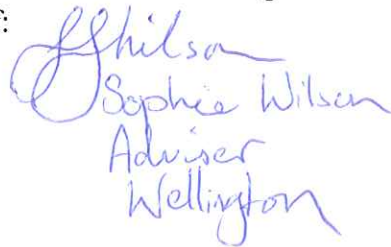 Sophie Wilson
Adviser
Wellington